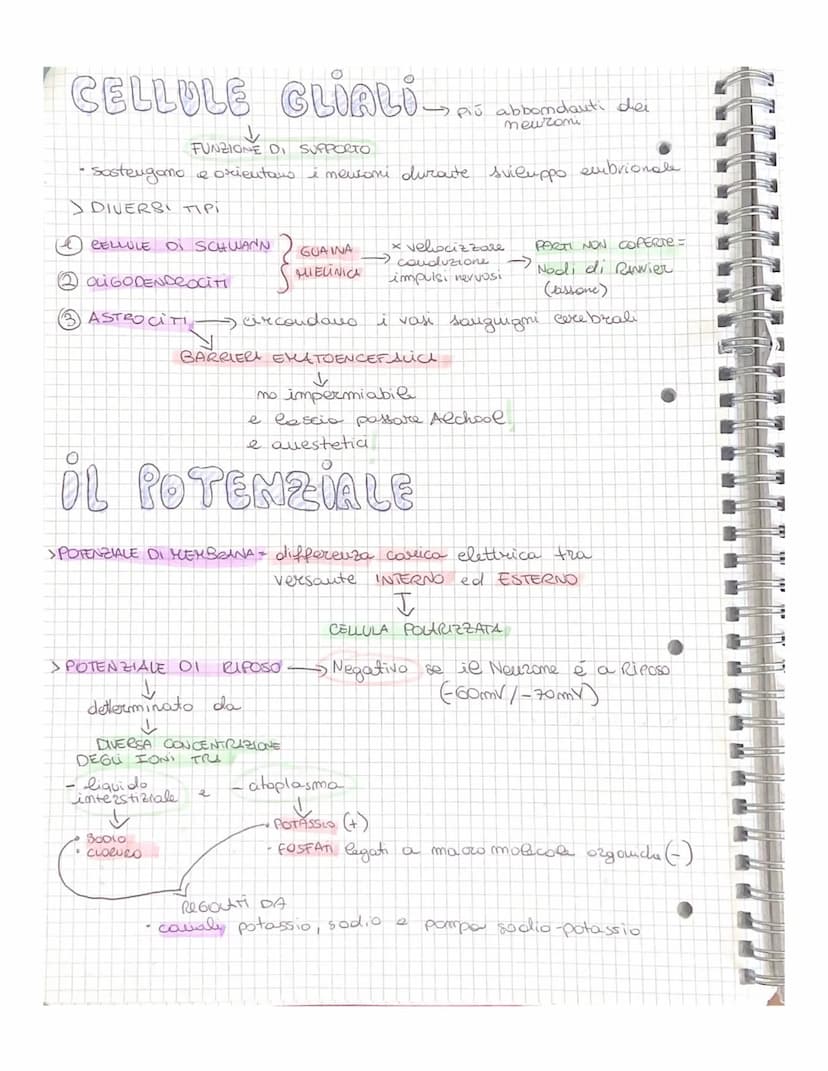 CELLULE GLIALI → più abbondanti dei
neuroni
↓
FUNZIONE DI SUPPORTO
• sostengono e orientano i neuroni durante sviluppo embrionale
> DIVERSI TIPI
① CELLULE DI SCHWANN } GUAINA → x velocizzare → PARTI NON COPERTE =
② OLIGODENDROCITI } MIELINICA conduzione Nodi di RANVIER
impulsi nervosi (assone)
③ ASTROCITI → circondano i vasi sanguigni cerebrali
↓
BARRIERA EMATOENCEFALICA
↓
no impermiabile
e lascia passare Alchool!
e anestetici!
IL POTENZIALE
> POTENZIALE DI MEMBRANA = differenza carica elettrica tra
versante INTERNO ed ESTERNO
↓
CELLULA POLARIZZATA
> POTENZIALE DI RIPOSO → Negativo se il Neurone é a Riposo
(-60mV/-70mV)
↓
determinato da
↓
DIVERSA CONCENTRAZIONE
DEGLI IONI TRA
- liquido interstiziale e - citoplasma
↓ ↓
• SODIO • POTASSIO (+)
• CLORURO • FOSFATI legati a macro molecole organiche (-)
REGOLATI DA
• canali potassio, sodio e pompa sodio-potassio